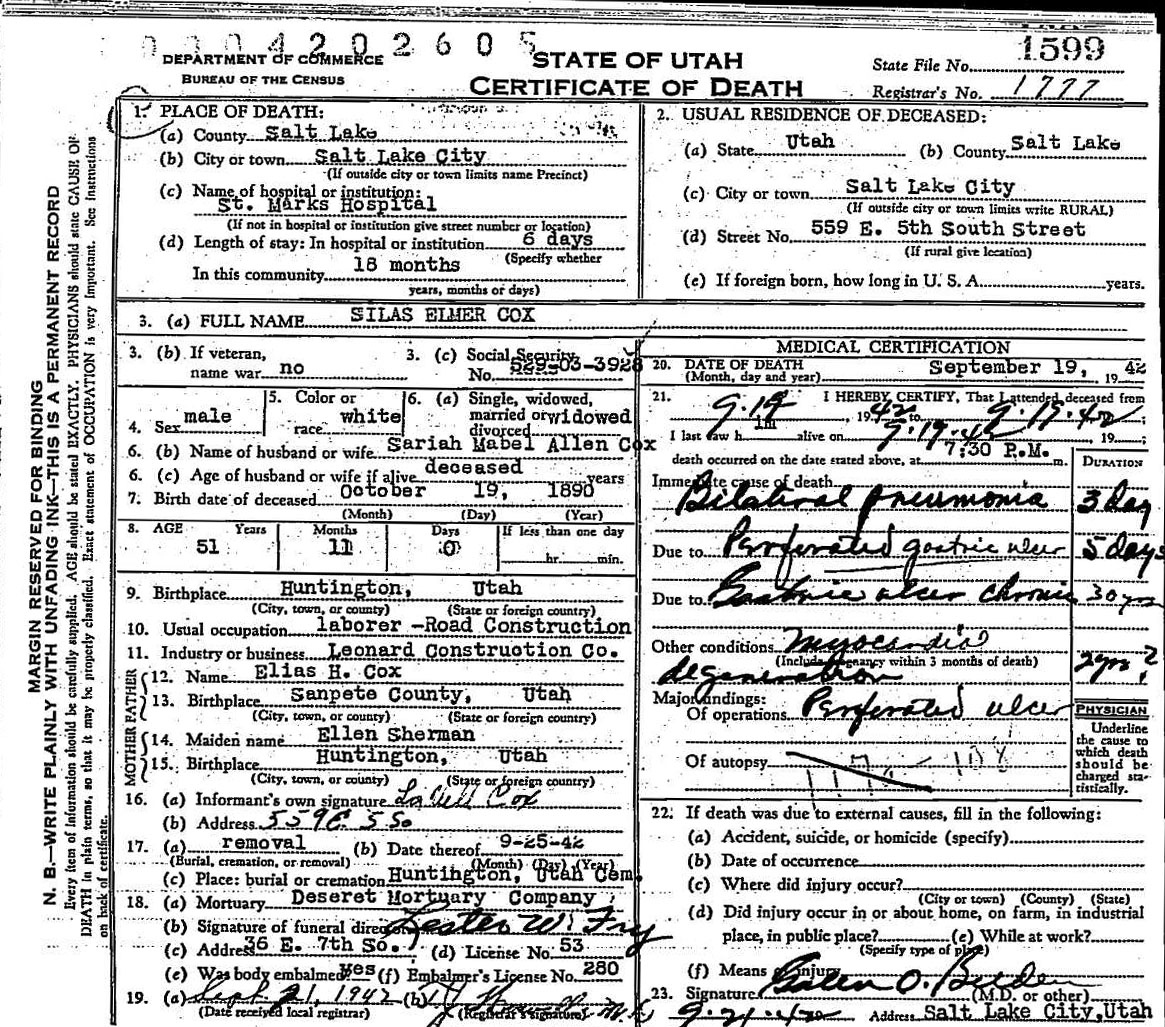 0004202605
DEPARTMENT OF COMMERCE
BUREAU OF THE CENSUS
STATE OF UTAH
CERTIFICATE OF DEATH
State File No. 1599
Registrar's No. 1777
MARGIN RESERVED FOR BINDING
N. B.—WRITE PLAINLY WITH UNFADING INK—THIS IS A PERMANENT RECORD
Every item of information should be carefully supplied. AGE should be stated EXACTLY. PHYSICIANS should state CAUSE OF
DEATH in plain terms, so that it may be properly classified. Exact statement of OCCUPATION is very important. See Instructions
on back of certificate.
1. PLACE OF DEATH:
(a) County Salt Lake
(b) City or town Salt Lake City
(If outside city or town limits name Precinct)
(c) Name of hospital or institution:
St. Marks Hospital
(If not in hospital or institution give street number or location)
(d) Length of stay: In hospital or institution 6 days
(Specify whether
In this community 18 months
years, months or days)
2. USUAL RESIDENCE OF DECEASED:
(a) State Utah (b) County Salt Lake
(c) City or town Salt Lake City
(If outside city or town limits write RURAL)
(d) Street No. 559 E. 5th South Street
(If rural give location)
(e) If foreign born, how long in U. S. A. years.
3. (a) FULL NAME SILAS ELMER COX
3. (b) If veteran, name war no
3. (c) Social Security No. 529-03-3928
4. Sex male
5. Color or race white
6. (a) Single, widowed, married or divorced widowed
6. (b) Name of husband or wife Sariah Mabel Allen Cox
6. (c) Age of husband or wife if alive deceased years
7. Birth date of deceased October 19, 1890
(Month) (Day) (Year)
8. AGE Years Months Days If less than one day
51 11 0 hr. min.
9. Birthplace Huntington, Utah
(City, town, or county) (State or foreign country)
10. Usual occupation laborer -Road Construction
11. Industry or business Leonard Construction Co.
FATHER
12. Name Elias H. Cox
13. Birthplace Sanpete County, Utah
(City, town, or county) (State or foreign country)
MOTHER
14. Maiden name Ellen Sherman
15. Birthplace Huntington, Utah
(City, town, or county) (State or foreign country)
16. (a) Informant's own signature Cox
(b) Address 559 E 5 So
17. (a) removal (b) Date thereof 9-25-42
(Burial, cremation, or removal) (Month) (Day) (Year)
(c) Place: burial or cremation Huntington, Utah Cem.
18. (a) Mortuary Deseret Mortuary Company
(b) Signature of funeral director Lester W. Fry
(c) Address 36 E. 7th So. (d) License No. 53
(e) Was body embalmed yes (f) Embalmer's License No. 280
19. (a) Sept 21, 1942 (b)
(Date received local registrar) (Registrar's signature)
MEDICAL CERTIFICATION
20. DATE OF DEATH September 19, 1942
(Month, day and year)
21. I HEREBY CERTIFY, That I attended deceased from
9.19 1942 to 9.19.42
I last saw him alive on 9.19.42, 19
death occurred on the date stated above, at 7:30 P.M. m.
DURATION
Immediate cause of death
Bilateral pneumonia 3 day
Due to Perforated gastric ulcer 5 days
Due to Gastric ulcer chronic 30 yrs
Other conditions Myocardial
(Include pregnancy within 3 months of death)
degeneration 2 yrs ?
Major findings:
Of operations Perforated ulcer
Of autopsy
PHYSICIAN
Underline
the cause to
which death
should be
charged sta-
tistically.
22. If death was due to external causes, fill in the following:
(a) Accident, suicide, or homicide (specify)
(b) Date of occurrence
(c) Where did injury occur?
(City or town) (County) (State)
(d) Did injury occur in or about home, on farm, in industrial
place, in public place? (e) While at work?
(Specify type of place)
(f) Means of injury
23. Signature O.
(M.D. or other)
9.21.42 Address Salt Lake City, Utah